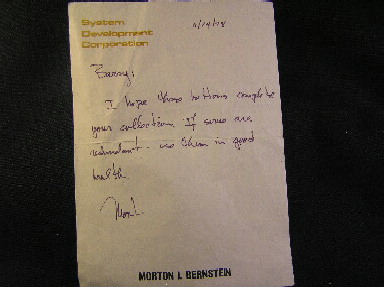 System
Development
Corporation
Larry,
I hope these buttons complete
your collection. If some are
redundant - use them in good
health.
Mort
MORTON I. BERNSTEIN